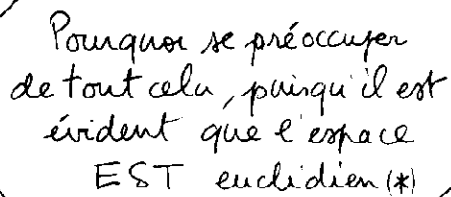 Pourquoi se préoccuper
de tout cela, puisqu'il est
évident que l'espace
EST euclidien (*)